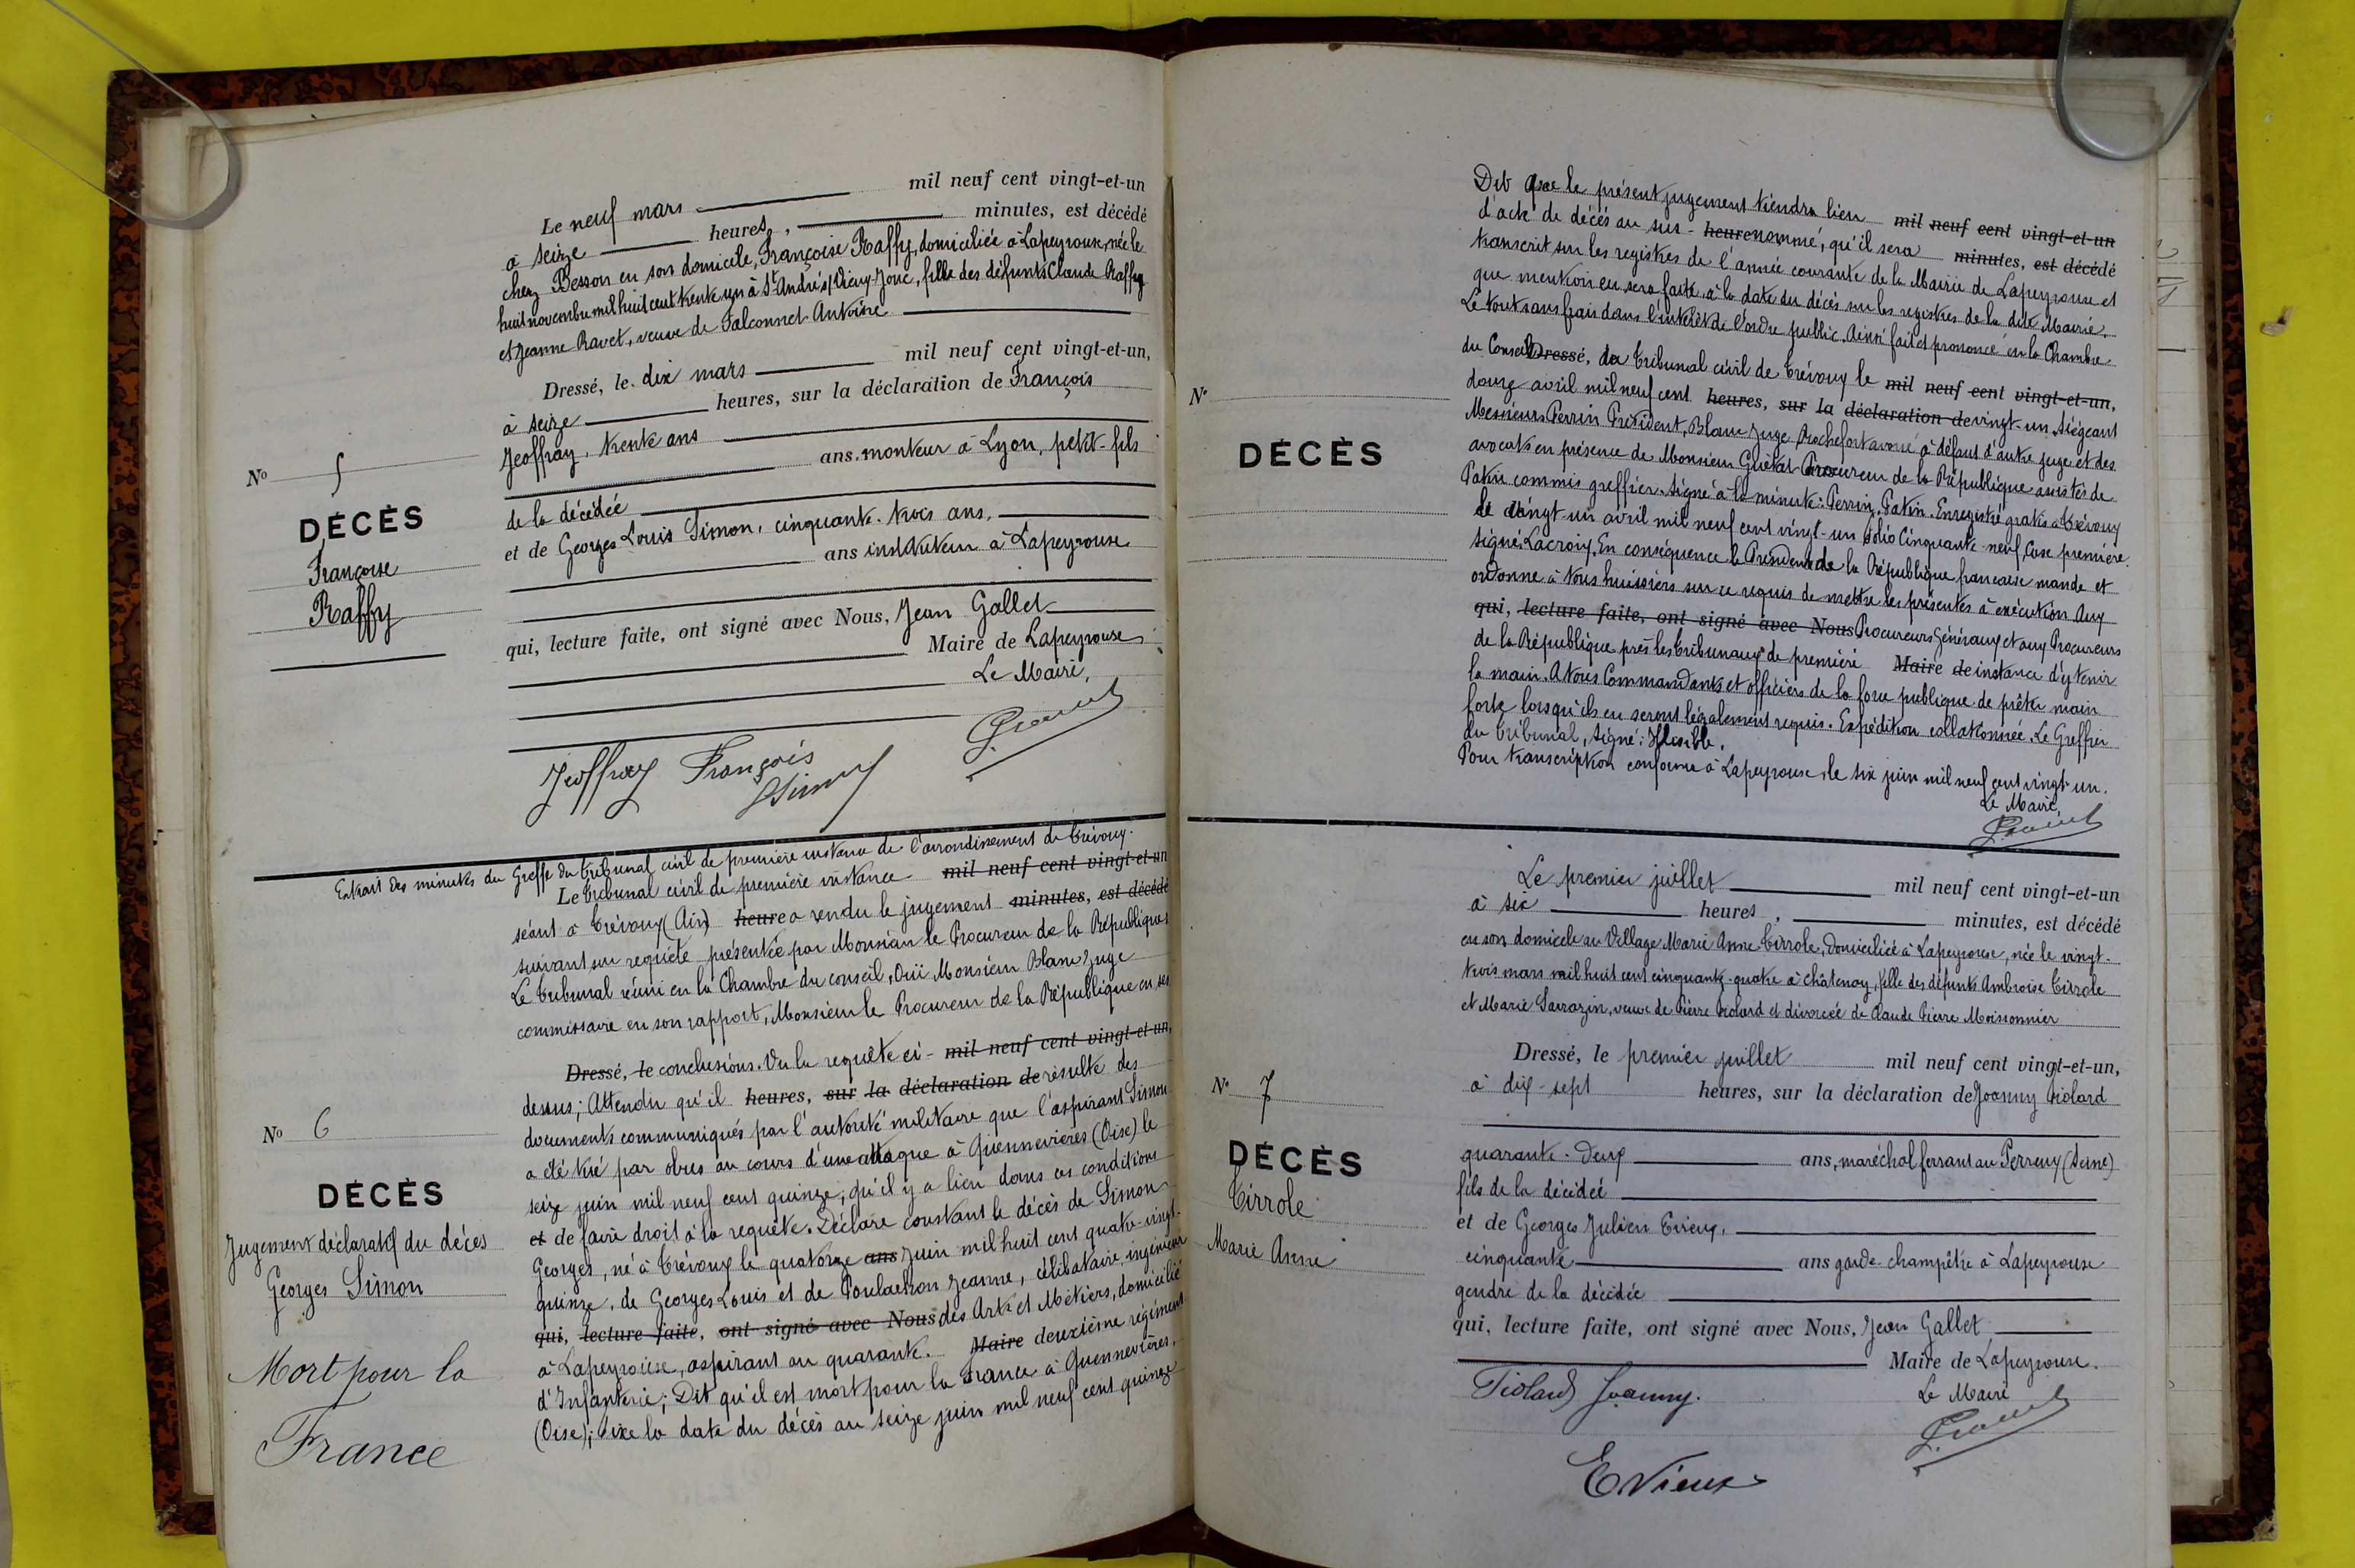 Le neuf mars mil neuf cent vingt-et-un
à seize heures, minutes, est décédé
chez Besson en son domicile, Françoise Raffy, domiciliée à Lapeyrouse, née le
huit novembre mil huit cent trente un à St André s/ Vieux-Jonc, fille des défunts Claude Raffy
et Jeanne Ravet, veuve de Falconnet Antoine
Dressé, le dix mars mil neuf cent vingt-et-un,
à seize heures, sur la déclaration de François
Jeoffray, trente ans
ans, monteur à Lyon, petit-fils
de la décédée
et de Georges Louis Simon, cinquante-trois ans,
ans instituteur à Lapeyrouse
qui, lecture faite, ont signé avec Nous, Jean Gallet
Maire de Lapeyrouse
Le Maire,
Jeoffray François
Simon
No 5
DÉCÈS
Françoise
Raffy
Extrait des minutes du Greffe du tribunal civil de première instance de l'arrondissement de Trévoux.
Le tribunal civil de première instance mil neuf cent vingt-et-un
séant à Trévoux (Ain) heure a rendu le jugement minutes, est décédé
suivant sur requête présentée par Monsieur le Procureur de la République
Le tribunal réuni en la Chambre du conseil, Ouï Monsieur Blanc Juge
commissaire en son rapport, Monsieur le Procureur de la République en ses
Dressé, le conclusions. Vu la requête ci- mil neuf cent vingt-et-un,
dessus; Attendu qu'il heures, sur la déclaration de résulte des
documents communiqués par l'autorité militaire que l'aspirant Simon
a été tué par obus au cours d'une attaque à Quennevières (Oise) le
seize juin mil neuf cent quinze; qu'il y a lieu dans ces conditions
et de faire droit à la requête. Déclare constant le décès de Simon
Georges, né à Trévoux le quatorze ans juin mil huit cent quatre-vingt-
quinze, de Georges Louis et de Poulachon Jeanne, célibataire, ingénieur
qui, lecture faite, ont signé avec Nous des Arts et Métiers, domicilié
à Lapeyrouse, aspirant au quarante- Maire deuxième régiment
d'Infanterie; Dit qu'il est mort pour la France à Quennevières,
(Oise); Fixe la date du décès au seize juin mil neuf cent quinze
No 6
DÉCÈS
Jugement déclaratif du décès
Georges Simon
Mort pour la
France
Dit que le présent jugement tiendra lieu mil neuf cent vingt-et-un
d'acte de décès au sus- heure nommé, qu'il sera minutes, est décédé
transcrit sur les registres de l'année courante de la Mairie de Lapeyrouse et
que mention en sera faite à la date du décès sur les registres de la dite Mairie.
Le tout sans frais dans l'intérêt de l'ordre public. Ainsi fait et prononcé en la Chambre
du Conseil Dressé, du tribunal civil de Trévoux le mil neuf cent vingt-et-un,
douze avril mil neuf cent heures, sur la déclaration de vingt-un. Siégeant
Messieurs Perrin Président, Blanc Juge, Rochefort avoué à défaut d'autre juge et des
avocats en présence de Monsieur Guétat Procureur de la République assistés de
Patin commis greffier. Signé à la minute: Perrin, Patin. Enregistré gratis à Trévoux
le vingt-un avril mil neuf cent vingt-un folio Cinquante-neuf, Case première.
signé Lacroix. En conséquence le Président de la République française mande et
ordonne à tous huissiers sur ce requis de mettre les présentes à exécution Aux
qui, lecture faite, ont signé avec Nous Procureurs Généraux et aux Procureurs
de la République près les tribunaux de première Maire de instance d'y tenir
la main. A tous Commandants et officiers de la force publique de prêter main
forte lorsqu'ils en seront légalement requis. Expédition collationnée. Le Greffier
du tribunal, signé: Illisible.
Pour transcription conforme à Lapeyrouse, le six juin mil neuf cent vingt-un.
Le Maire,
No
DÉCÈS
Le premier juillet mil neuf cent vingt-et-un
à six heures, minutes, est décédé
en son domicile au Village Marie Anne Tirrole, domiciliée à Lapeyrouse, née le vingt-
trois mars mil huit cent cinquante-quatre à Châtenay, fille des défunts Ambroise Tirrole
et Marie Sarrazin, veuve de Pierre Piolard et divorcée de Claude Pierre Moissonnier
Dressé, le premier juillet mil neuf cent vingt-et-un,
à dix-sept heures, sur la déclaration de Joanny Piolard
quarante-deux ans, maréchal ferrant au Perreux (Seine)
fils de la décédée
et de Georges Julien Evieux,
cinquante ans garde-champêtre à Lapeyrouse
gendre de la décédée
qui, lecture faite, ont signé avec Nous, Jean Gallet
Maire de Lapeyrouse.
Piolard Joanny.
Le Maire
Evieux
No 7
DÉCÈS
Tirrole
Marie Anne